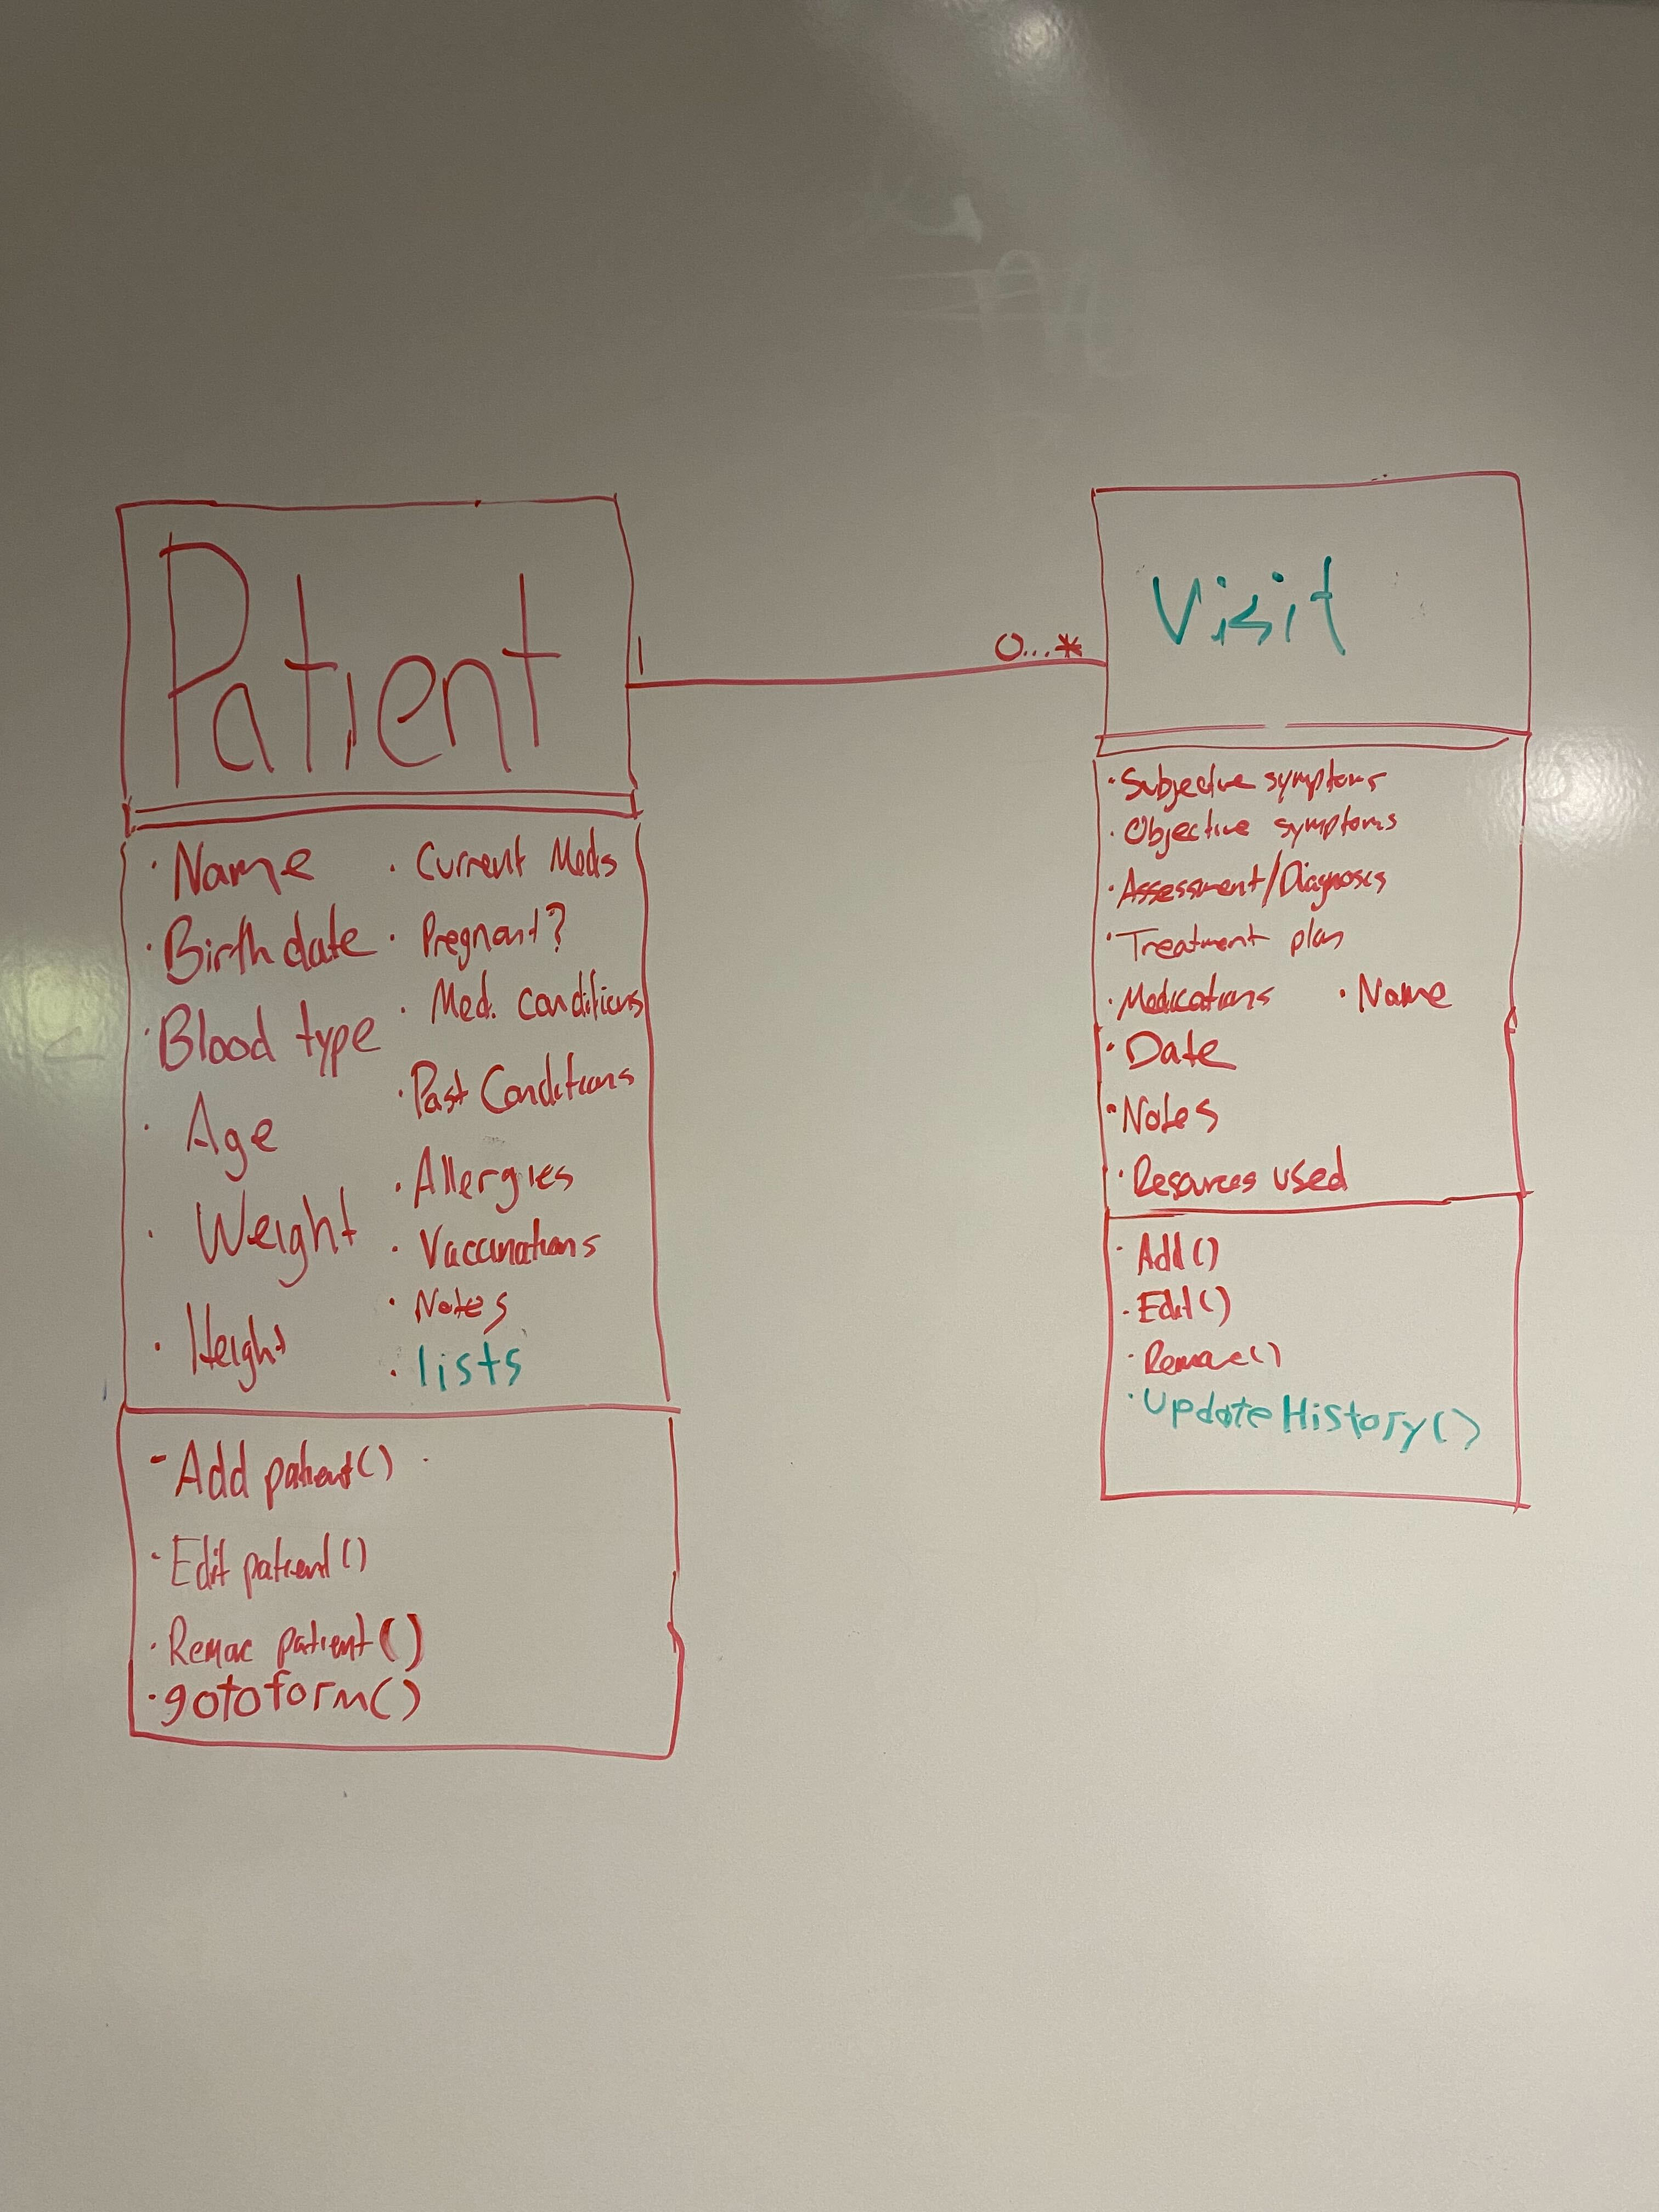 Patient
1
0...*
Visit
· Name
· Birthdate
· Blood type
· Age
· Weight
· Height
· Current Meds
· Pregnant?
· Med. conditions
· Past Conditions
· Allergies
· Vaccinations
· Notes
· lists
- Add patient()
· Edit patient()
· Remove patient()
· gotoform()
· Subjective symptoms
· Objective symptoms
· Assessment/Diagnosis
· Treatment plan
· Medications · Name
· Date
· Notes
· Resources used
· Add()
· Edit()
· Remove()
· UpdateHistory()